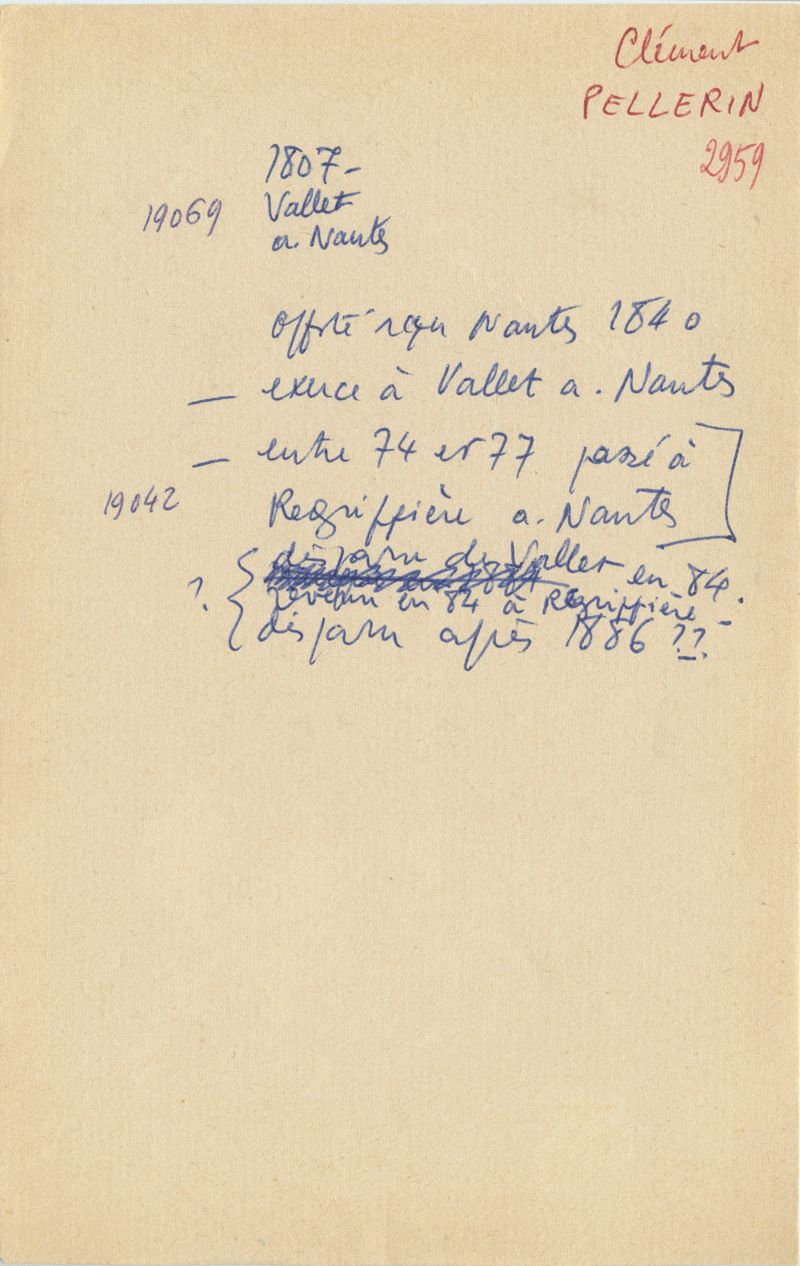 Clément
PELLERIN
2959
1807-
19069 Vallet
a. Nantes
offté reçu Nantes 1840
— exerce à Vallet a. Nantes
— entre 74 et 77 passé à
19042 Regrippière a. Nantes
disparu de Vallet en 84.
? revenu en 84 à Regrippière -
disparu après 1886 ??